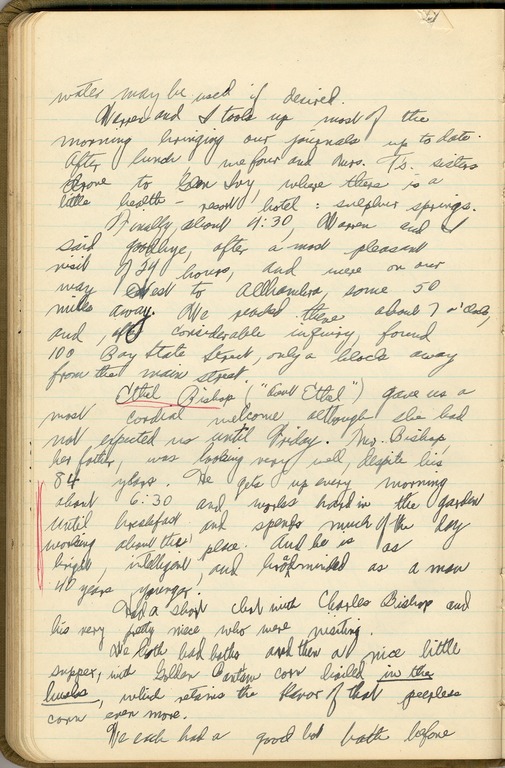 water may be used if desired.
Warren and I took up most of the
morning bringing our journals up to date.
After lunch we four and Mrs. T's sisters
drove to Glen Ivy, where there is a
little health-resort hotel: sulphur springs.
Finally, about 4:30, Warren and I
said goodbye, after a most pleasant
visit of 24 hours, and were on our
way West to Alhambra, some 50
miles away. We reached there about 7 o'clock,
and, after considerable inquiry, found
100 Bay State Street, only a block away
from the main street.
Ethel Bishop ("Aunt Ethel") gave us a
most cordial welcome although she had
not expected us until Friday. Mr. Bishop,
her father, was looking very well, despite his
84 years. He gets up every morning
about 6:30 and works hard in the garden
until breakfast and spends much of the day
working about the place. And he is as
bright, intelligent, and broadminded as a man
40 years younger.
Had a short chat with Charles Bishop and
his very pretty niece who were visiting.
We both had baths and then a nice little
supper, with Golden Bantam corn boiled in the
husks, which retains the flavor of that peerless
corn even more.
We each had a good hot bath before